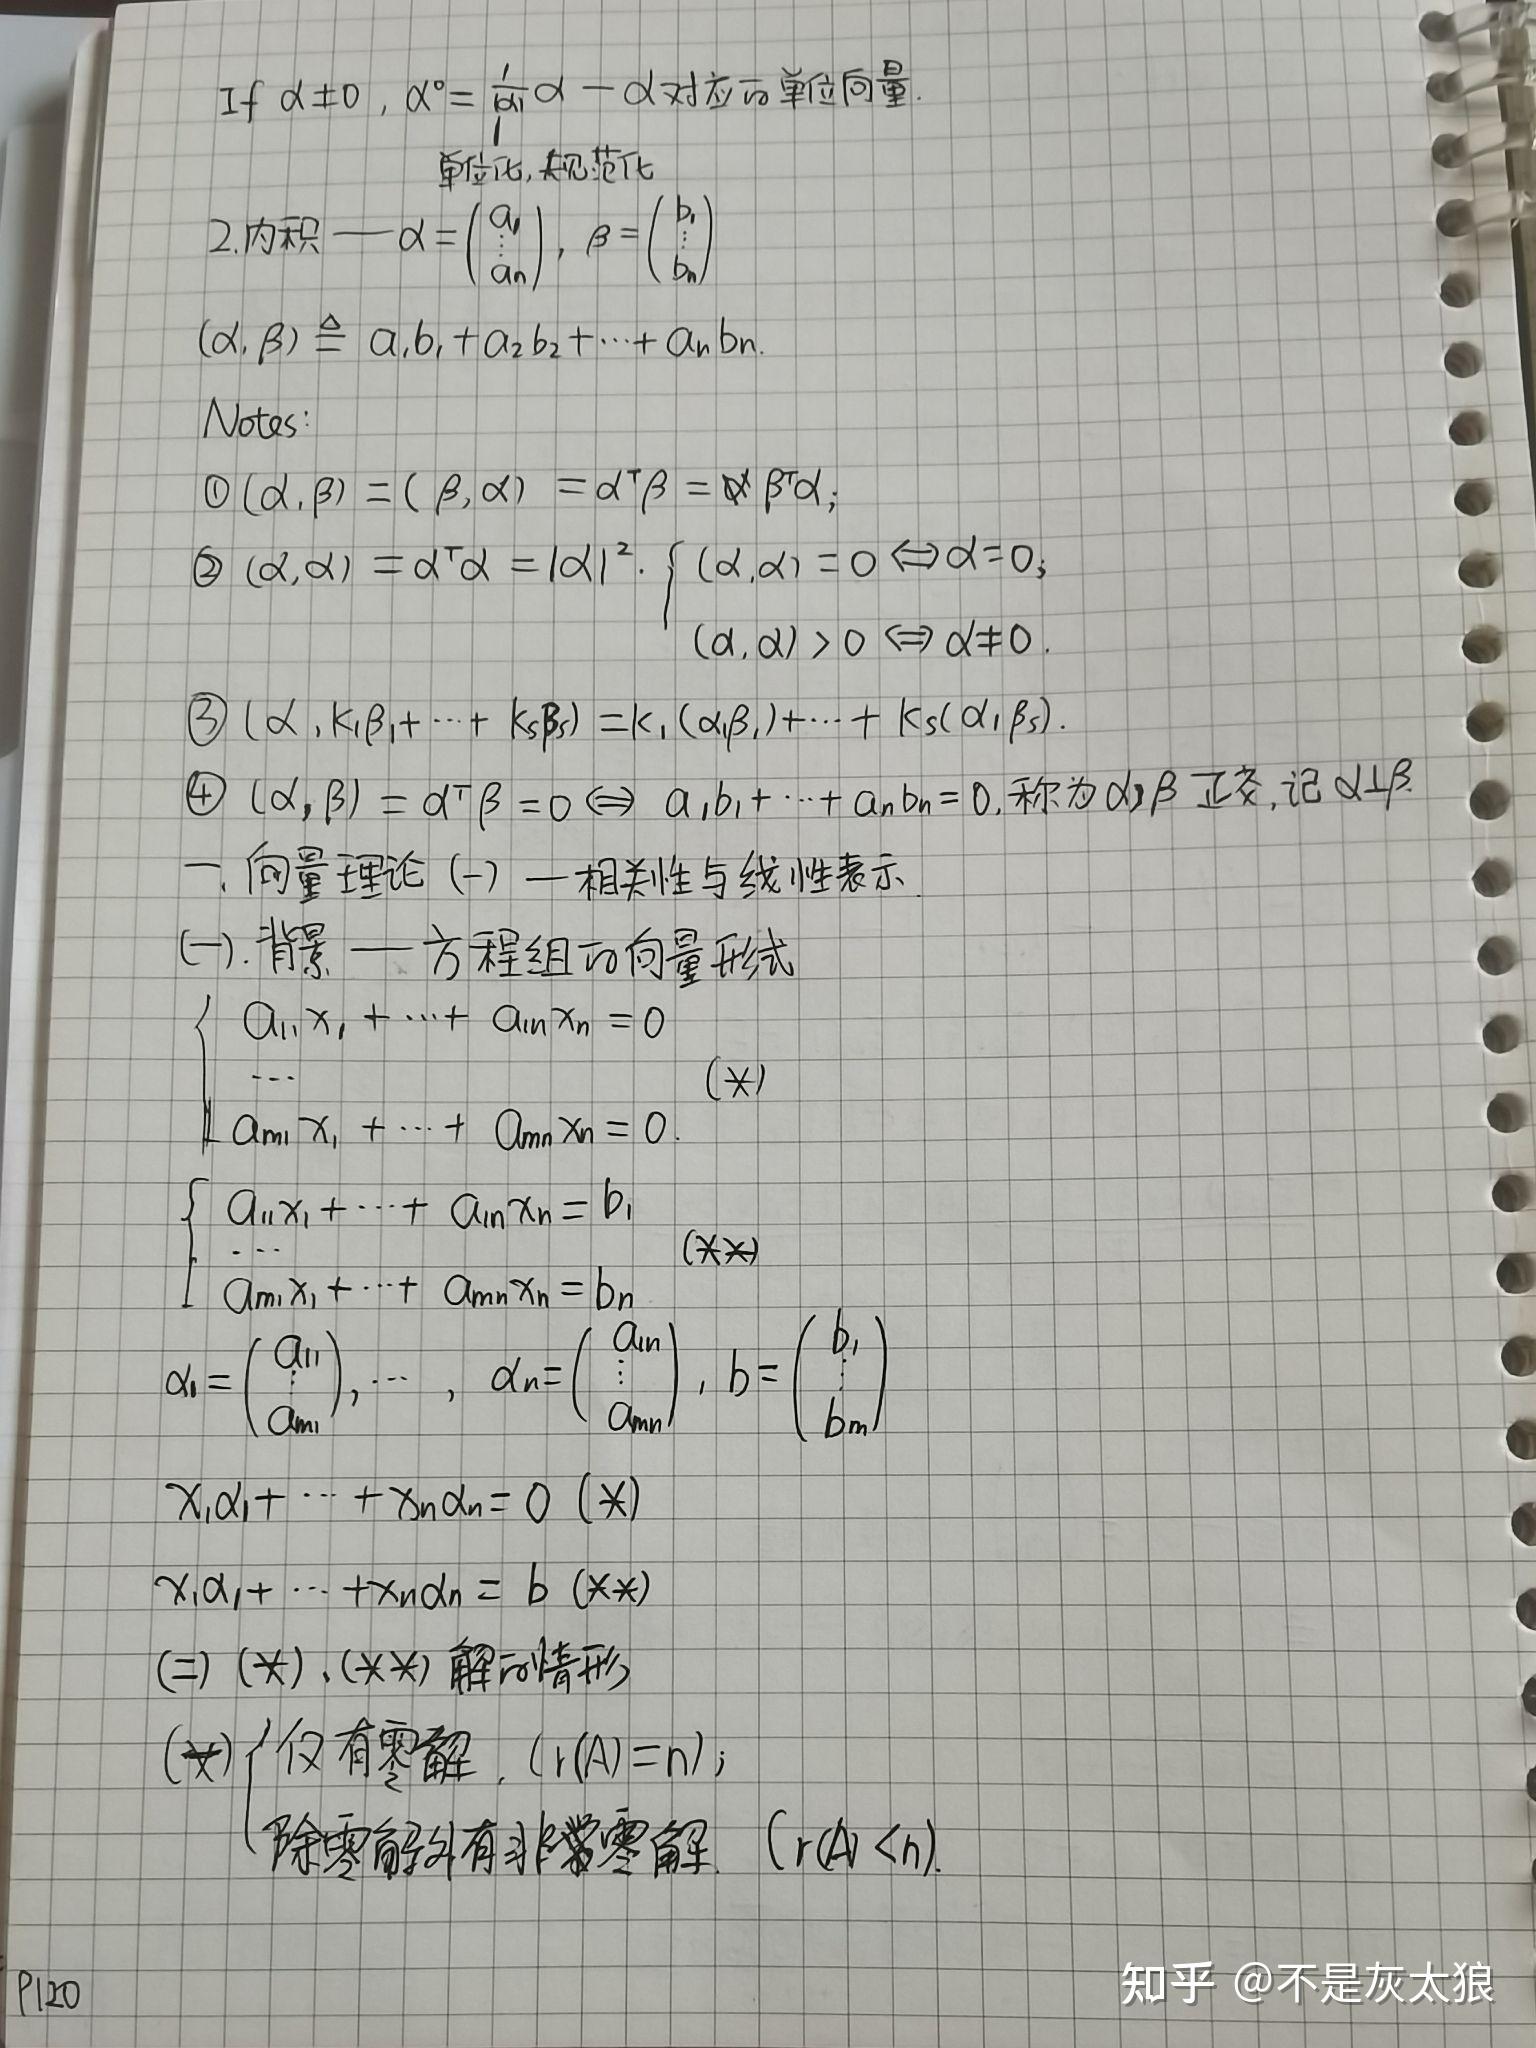 If α≠0, α°=1/|α| α — α对应的单位向量.
单位化,规范化
2.内积 — α=(a₁ ⋮ aₙ), β=(b₁ ⋮ bₙ)
(α,β) ≜ a₁b₁+a₂b₂+⋯+aₙbₙ.
Notes:
①(α,β)=(β,α) =αᵀβ=βᵀα;
②(α,α)=αᵀα=|α|². { (α,α)=0⇔α=0;
(α,α)>0⇔α≠0.
③(α,k₁β₁+⋯+kₛβₛ)=k₁(α,β₁)+⋯+kₛ(α,βₛ).
④(α,β)=αᵀβ=0⇔a₁b₁+⋯+aₙbₙ=0,称为α,β正交,记α⊥β.
一.向量理论(一)—相关性与线性表示.
(一).背景—方程组的向量形式
{ a₁₁x₁+⋯+a₁ₙxₙ=0
⋯ (*)
aₘ₁x₁+⋯+aₘₙxₙ=0.
{ a₁₁x₁+⋯+a₁ₙxₙ=b₁
⋯ (**)
aₘ₁x₁+⋯+aₘₙxₙ=bₙ
α₁=(a₁₁ ⋮ aₘ₁),⋯, αₙ=(a₁ₙ ⋮ aₘₙ), b=(b₁ ⋮ bₘ)
x₁α₁+⋯+xₙαₙ=0 (*)
x₁α₁+⋯+xₙαₙ=b (**)
(二) (*)、(**)解的情形
(*){ 仅有零解. (r(A)=n);
除零解外有非零解. (r(A)<n).
P120
知乎 @不是灰太狼